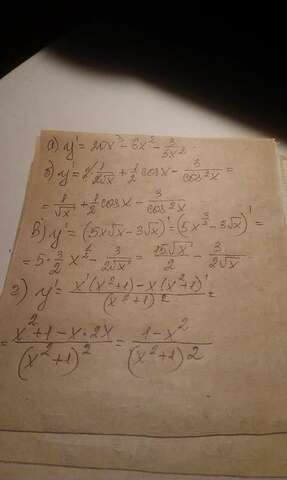 а) y' = 20x³ - 6x² - 3/5x²
б) y' = 2·1/2√x + 1/2 cos x - 3/cos²x =
= 1/√x + 1/2 cos x - 3/cos²x
в) y' = (5x√x - 3√x)' = (5x^(3/2) - 3√x)' =
= 5·3/2 x^(1/2) - 3/2√x = 15√x/2 - 3/2√x
г) y' = x'(x²+1) - x(x²+1)'/(x²+1)² =
= x²+1 - x·2x/(x²+1)² = 1-x²/(x²+1)²